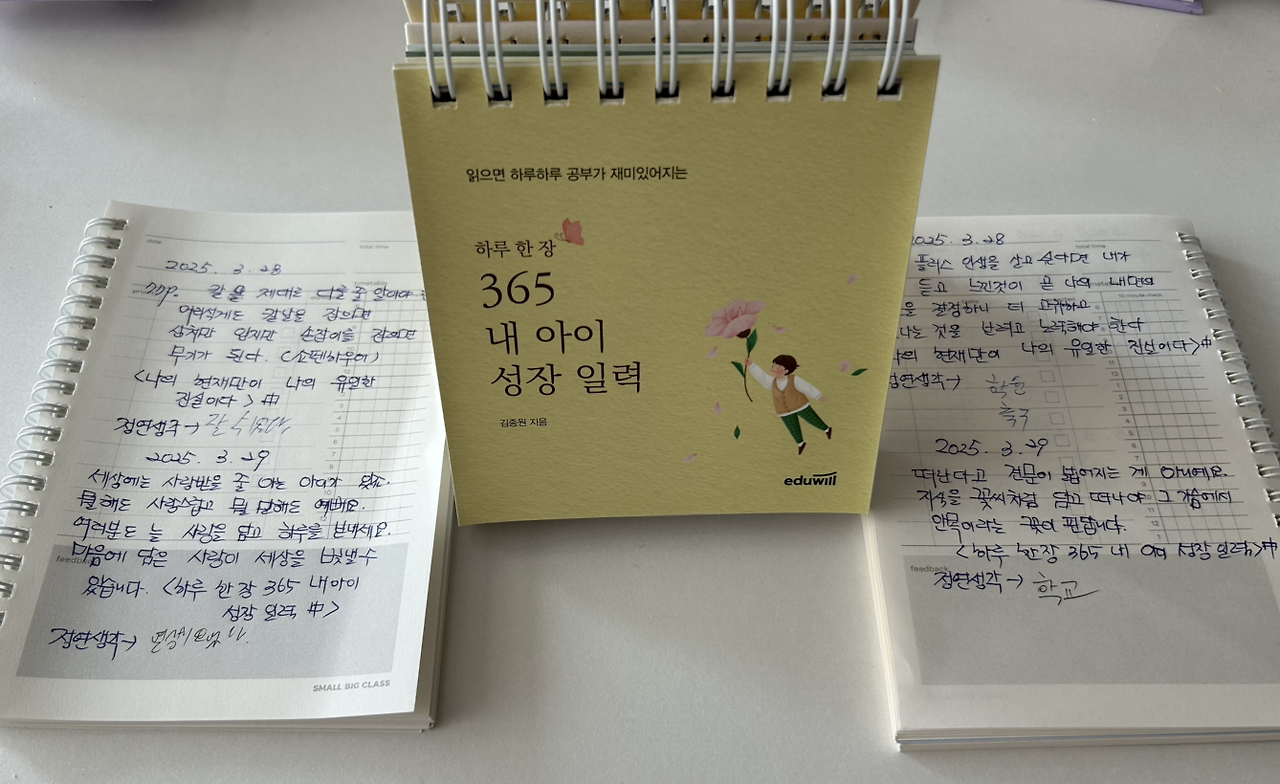 읽으면 하루하루 공부가 재미있어지는
하루 한 장
365
내 아이
성장 일력
김종원 지음
eduwill
date
total time
2025. 3. 28
timetable
칼을 제대로 다룰 줄 알아야
어리석게도 칼날을 잡으면
상처만 입지만 손잡이를 잡으면
무기가 된다. <쇼펜하우어>
<나의 현재만이 나의 유일한
진실이다> 中
정연생각→
2025. 3. 29
세상에는 사랑받을 줄 아는 아이가 있죠.
뭘해도 사랑스럽고 뭘 말해도 예뻐요.
여러분도 늘 사랑을 담고 하루를 보내세요.
마음에 담은 사랑이 세상을 빛낼 수
feedback
있습니다. <하루 한 장 365 내 아이
성장 일력 中>
정연생각→
SMALL BIG CLASS
2025. 3. 28
total time
플러스 인생을 살고 싶다면 내가
듣고 느낀것이 곧 나의 내면의
을 결정하니 더 고귀하고
나는 것을 보려고 노력해야 한다
나의 현재만이 나의 유일한 진실이다>中
10 minute check
정연생각→ 학원
축구
2025. 3. 29
떠난다고 견문이 넓어지는 게 아니에요.
지식을 꽃씨처럼 담고 떠나야 그 길에서
안목이라는 꽃이 핀답니다.
<하루 한장 365 내 아이 성장 일력>中
feedback
정연생각→ 학교